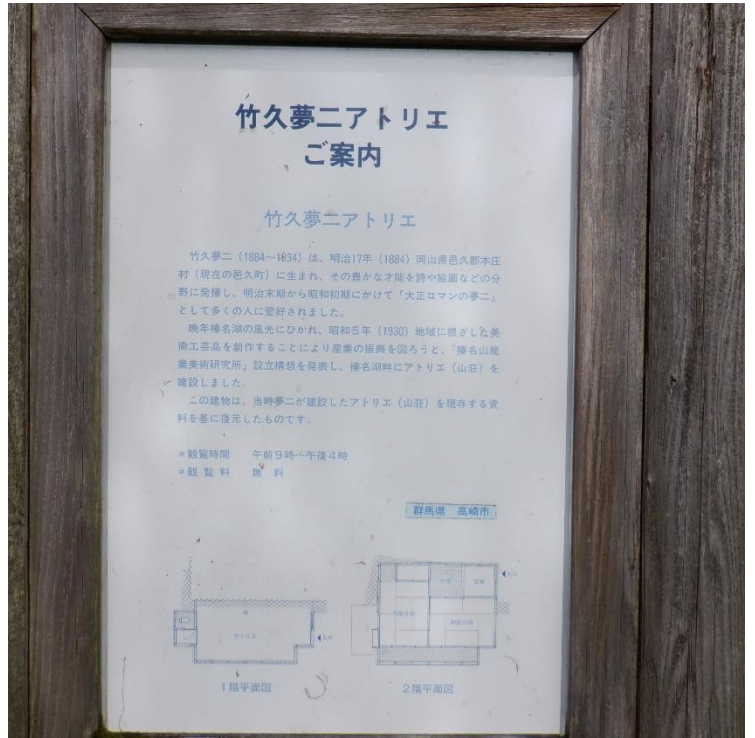 竹久夢二アトリエ
ご案内
竹久夢二アトリエ
竹久夢二(1884〜1934)は、明治17年(1884)岡山県邑久郡本庄
村(現在の邑久町)に生まれ、その豊かな才能を詩や絵画などの分
野に発揮し、明治末期から昭和初期にかけて「大正ロマンの夢二」
として多くの人に愛好されました。
晩年榛名湖の風光にひかれ、昭和5年(1930)地域に根ざした美
術工芸品を創作することにより産業の振興を図ろうと、「榛名山産
業美術研究所」設立構想を発表し、榛名湖畔にアトリエ(山荘)を
建設しました。
この建物は、当時夢二が建設したアトリエ(山荘)を現存する資
料を基に復元したものです。
*観覧時間 午前9時〜午後4時
*観覧料 無料
群馬県 高崎市
アトリエ
入口
1階平面図
玄関
入口
2階平面図